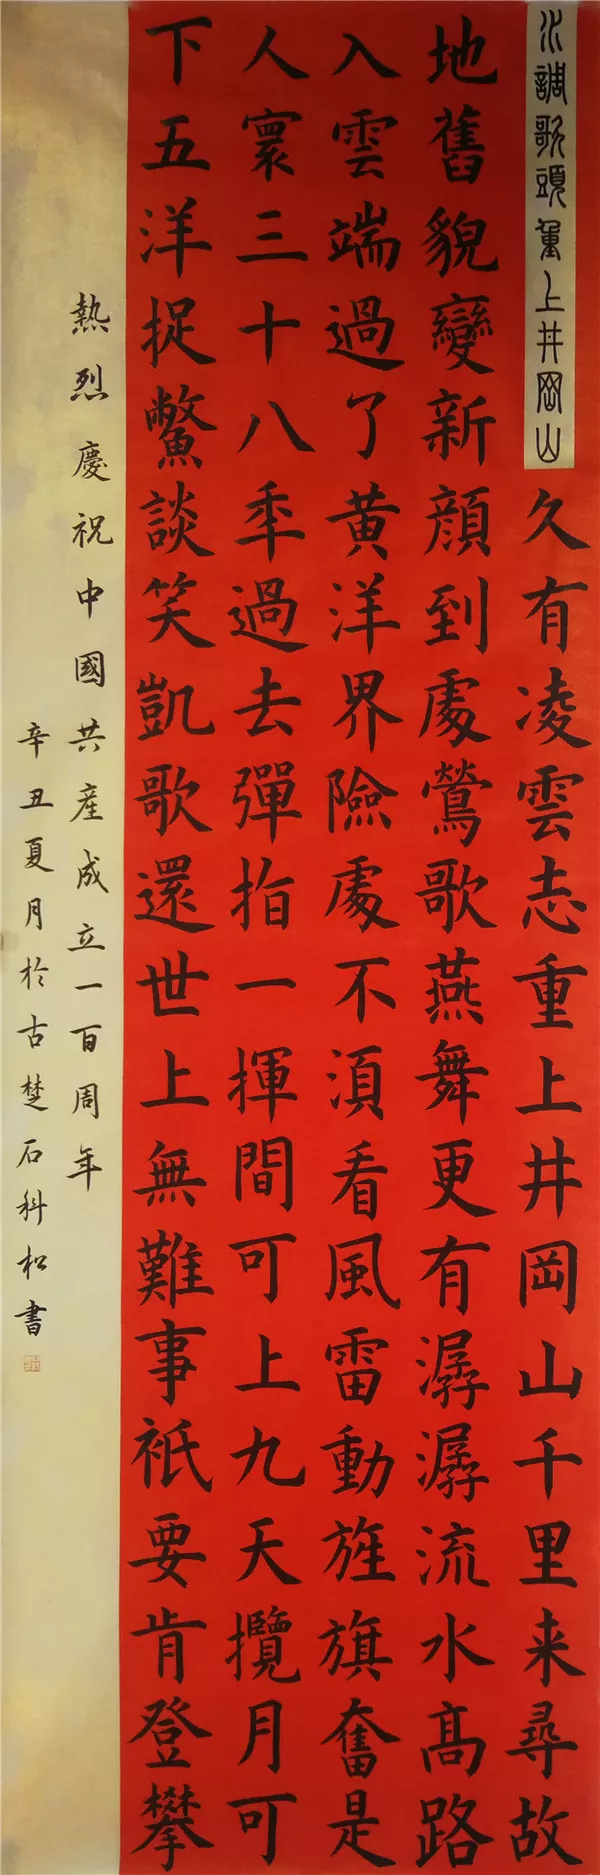 水調歌頭重上井岡山
久有凌雲志重上井岡山千里来尋故
地舊貌變新顔到處鶯歌燕舞更有潺潺流水髙路
入雲端過了黄洋界險處不須看風雷動旌旗奮是
人寰三十八秊過去彈指一揮間可上九天攬月可
下五洋捉鱉談笑凱歌還世上無難事衹要肯登攀
熱烈慶祝中國共産成立一百周年
辛丑夏月於古楚石科松書